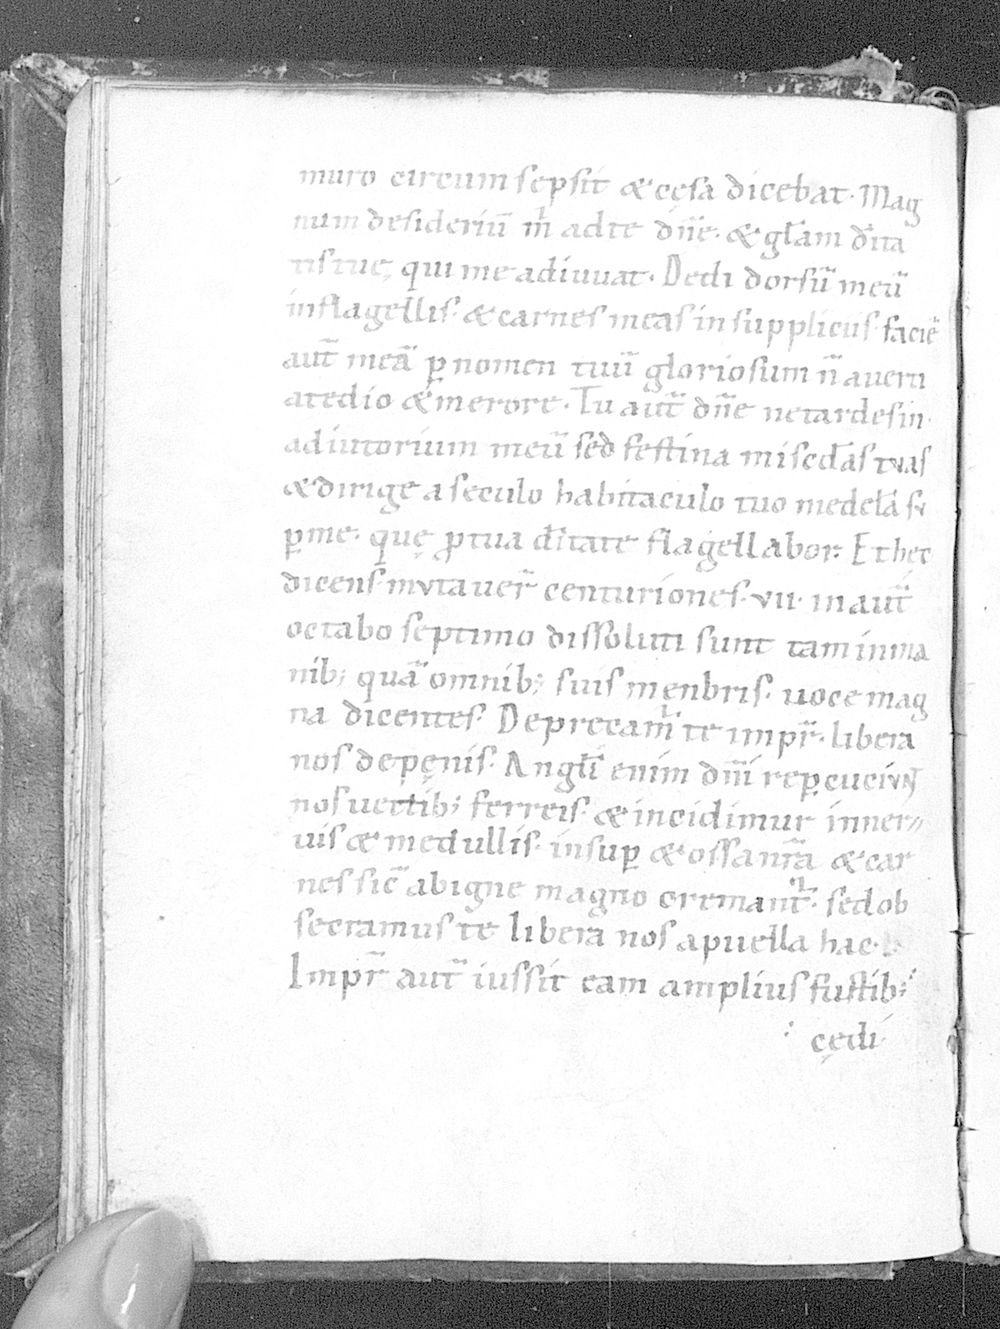 muro circum sepsit & cęsa dicebat. Mag
num desideriũ m̄ ad te dñe. & gl̄am dīta
tis tuę, qui me adiuuat. Dedi dorsũ meũ
in flagellis. & carnes meas in suppliciis. faciẽ
aut̃ meã ꝑ nomen tuũ gloriosum ñ auerti
a tedio & merore. Tu aut̃ dñe ne tardes in
adiutorium meũ sed festina mised̄as tuas
& dirige a seculo habitaculo tuo medelã su
ꝑ me. quę ꝓ tua dītate flagellabor. Et hec
dicens. mutauer̃ centuriones. vii. in aut̃
octabo septimo dissoluti sunt tam in ma
nib; quã omnib; suis menbris. uoce mag
na dicentes. Deprecam̄ te impr̃. libera
nos de pęnis. Angl̄i enim dm̃i reꝑcuciuɴᴛ
nos uectib; ferreis. & incidimur in ner
uis & medullis. insuꝑ & ossa nr̃a & car
nes sic̃ ab igne magno cremant̃. sed ob
secramus te libera nos a puella hac.
Impr̃ aut̃ iussit eam amplius fustib;
cędi